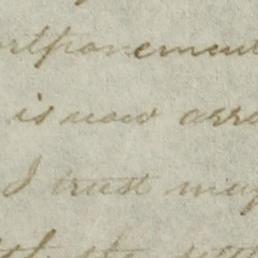 ortponement
is now arra
I trust may
the